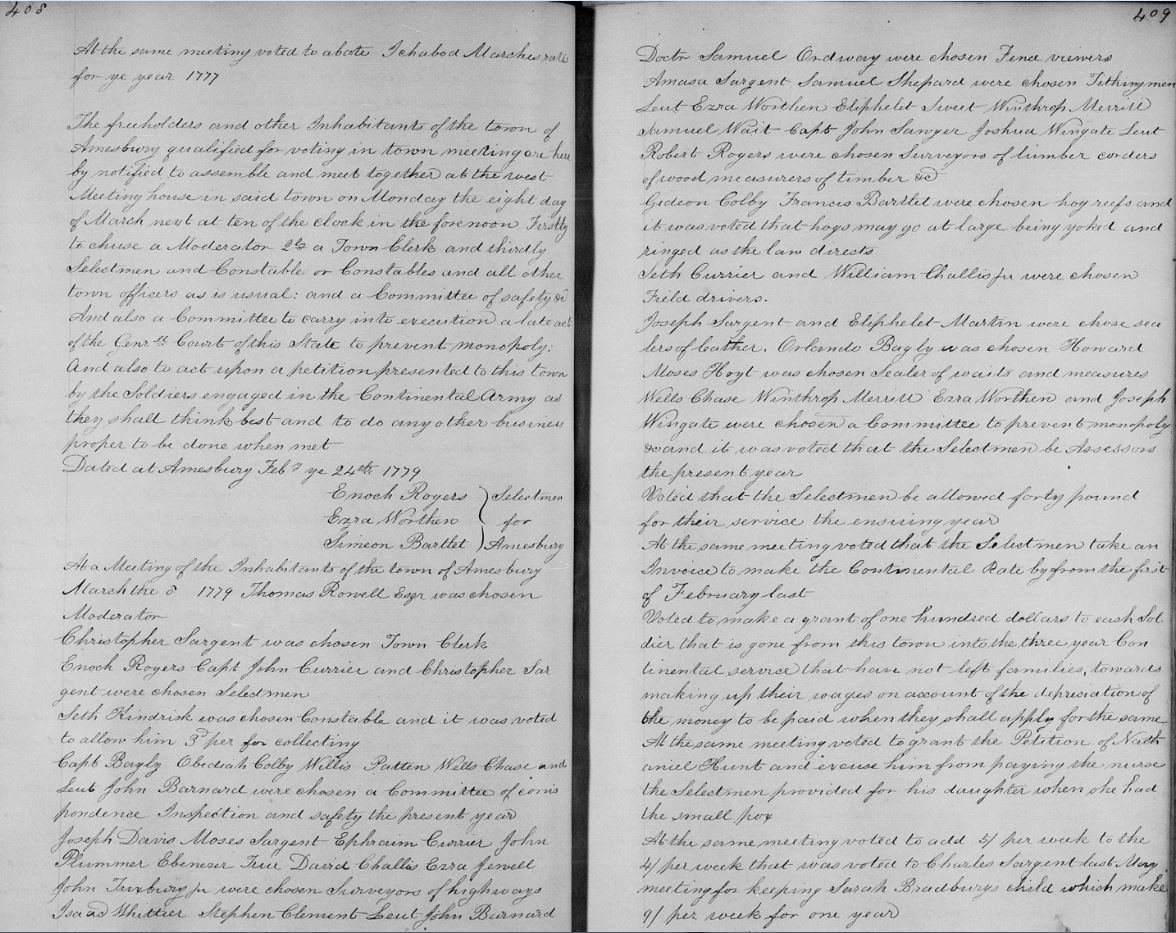 408
At the same meeting voted to abate Ichabod Marches rate
for ye year 1777
The freeholders and other Inhabitants of the town of
Amesbury qualified for voting in town meeting are here
by notified to assemble and meet together at the west
Meeting house in said town on Monday the eight day
of March next at ten of the clock in the forenoon Firstly
to chuse a Moderator 2ly a Town Clerk and thirdly
Selectmen and Constable or Constables and all other
town officers as is usual: and a Committee of safety &c
And also a Committee to carry into execution a late act
of the Genrll Court of this State to prevent monopoly:
And also to act upon a petition presented to this town
by the Soldiers engaged in the Continental Army as
they shall think best and to do any other business
proper to be done when met
Dated at Amesbury Feby ye 24th 1779
Enoch Rogers } Selectmen
Ezra Worthen } for
Simeon Bartlet } Amesbury
At a Meeting of the Inhabitants of the town of Amesbury
March the 8 1779 Thomas Rowell Esqr was chosen
Moderator
Christopher Sargent was chosen Town Clerk
Enoch Rogers Capt John Currier and Christopher Sar
gent were chosen Selectmen
Seth Kindrisk was chosen Constable and it was voted
to allow him 3d per for collecting
Capt Bagly Obediah Colby Willis Patten Wells Chase and
Leut John Barnard were chosen a Committee of corris
pondence Inspection and safety the present year
Joseph Davis Moses Sargent Ephraim Currier John
Plummer Ebenezer True David Challis Ezra Jewell
John Tuxbury ju were chosen Surveyors of highways
Isaac Whittier Stephen Clement Leut John Barnard
409
Doctr Samuel Ordway were chosen Fence viewers
Amasa Sargent Samuel Shepard were chosen Tithingmen
Leut Ezra Worthen Eliphelet Sweet Winthrop Merrill
Samuel Wait Capt John Sawyer Joshua Wingate Leut
Robert Rogers were chosen Surveyors of lumber corders
of wood measurers of timber &c
Gideon Colby Francis Bartlet were chosen hog reefs and
it was voted that hogs may go at large being yoked and
ringed as the law directs
Seth Currier and William Challis ju were chosen
Field drivers.
Joseph Sargent and Eliphelet Martin were chose sea
lers of leather. Orlando Bagly was chosen Howard
Moses Hoyt was chosen Sealer of waits and measures
Wells Chase Winthrop Merrill Ezra Worthen and Joseph
Wingate were chosen a Committee to prevent monopoly
&c and it was voted that the Selectmen be Assessors
the present year
Voted that the Selectmen be allowed forty pound
for their service the ensuing year
At the same meeting voted that the Selectmen take an
Invoice to make the Continental Rate by from the first
of February last
Voted to make a grant of one hundred dollars to each Sol
dier that is gone from this town into the three year Con
tinental service that have not left families, towards
making up their wages on account of the depreciation of
the money to be paid when they shall apply for the same
At the same meeting voted to grant the Petition of Nath
aniel Hunt and excuse him from paying the nurse
the Selectmen provided for his daughter when she had
the small pox
At the same meeting voted to add 5/ per week to the
4/ per week that was voted to Charles Sargent last May
meeting for keeping Sarah Bradbury's child which make
9/ per week for one year